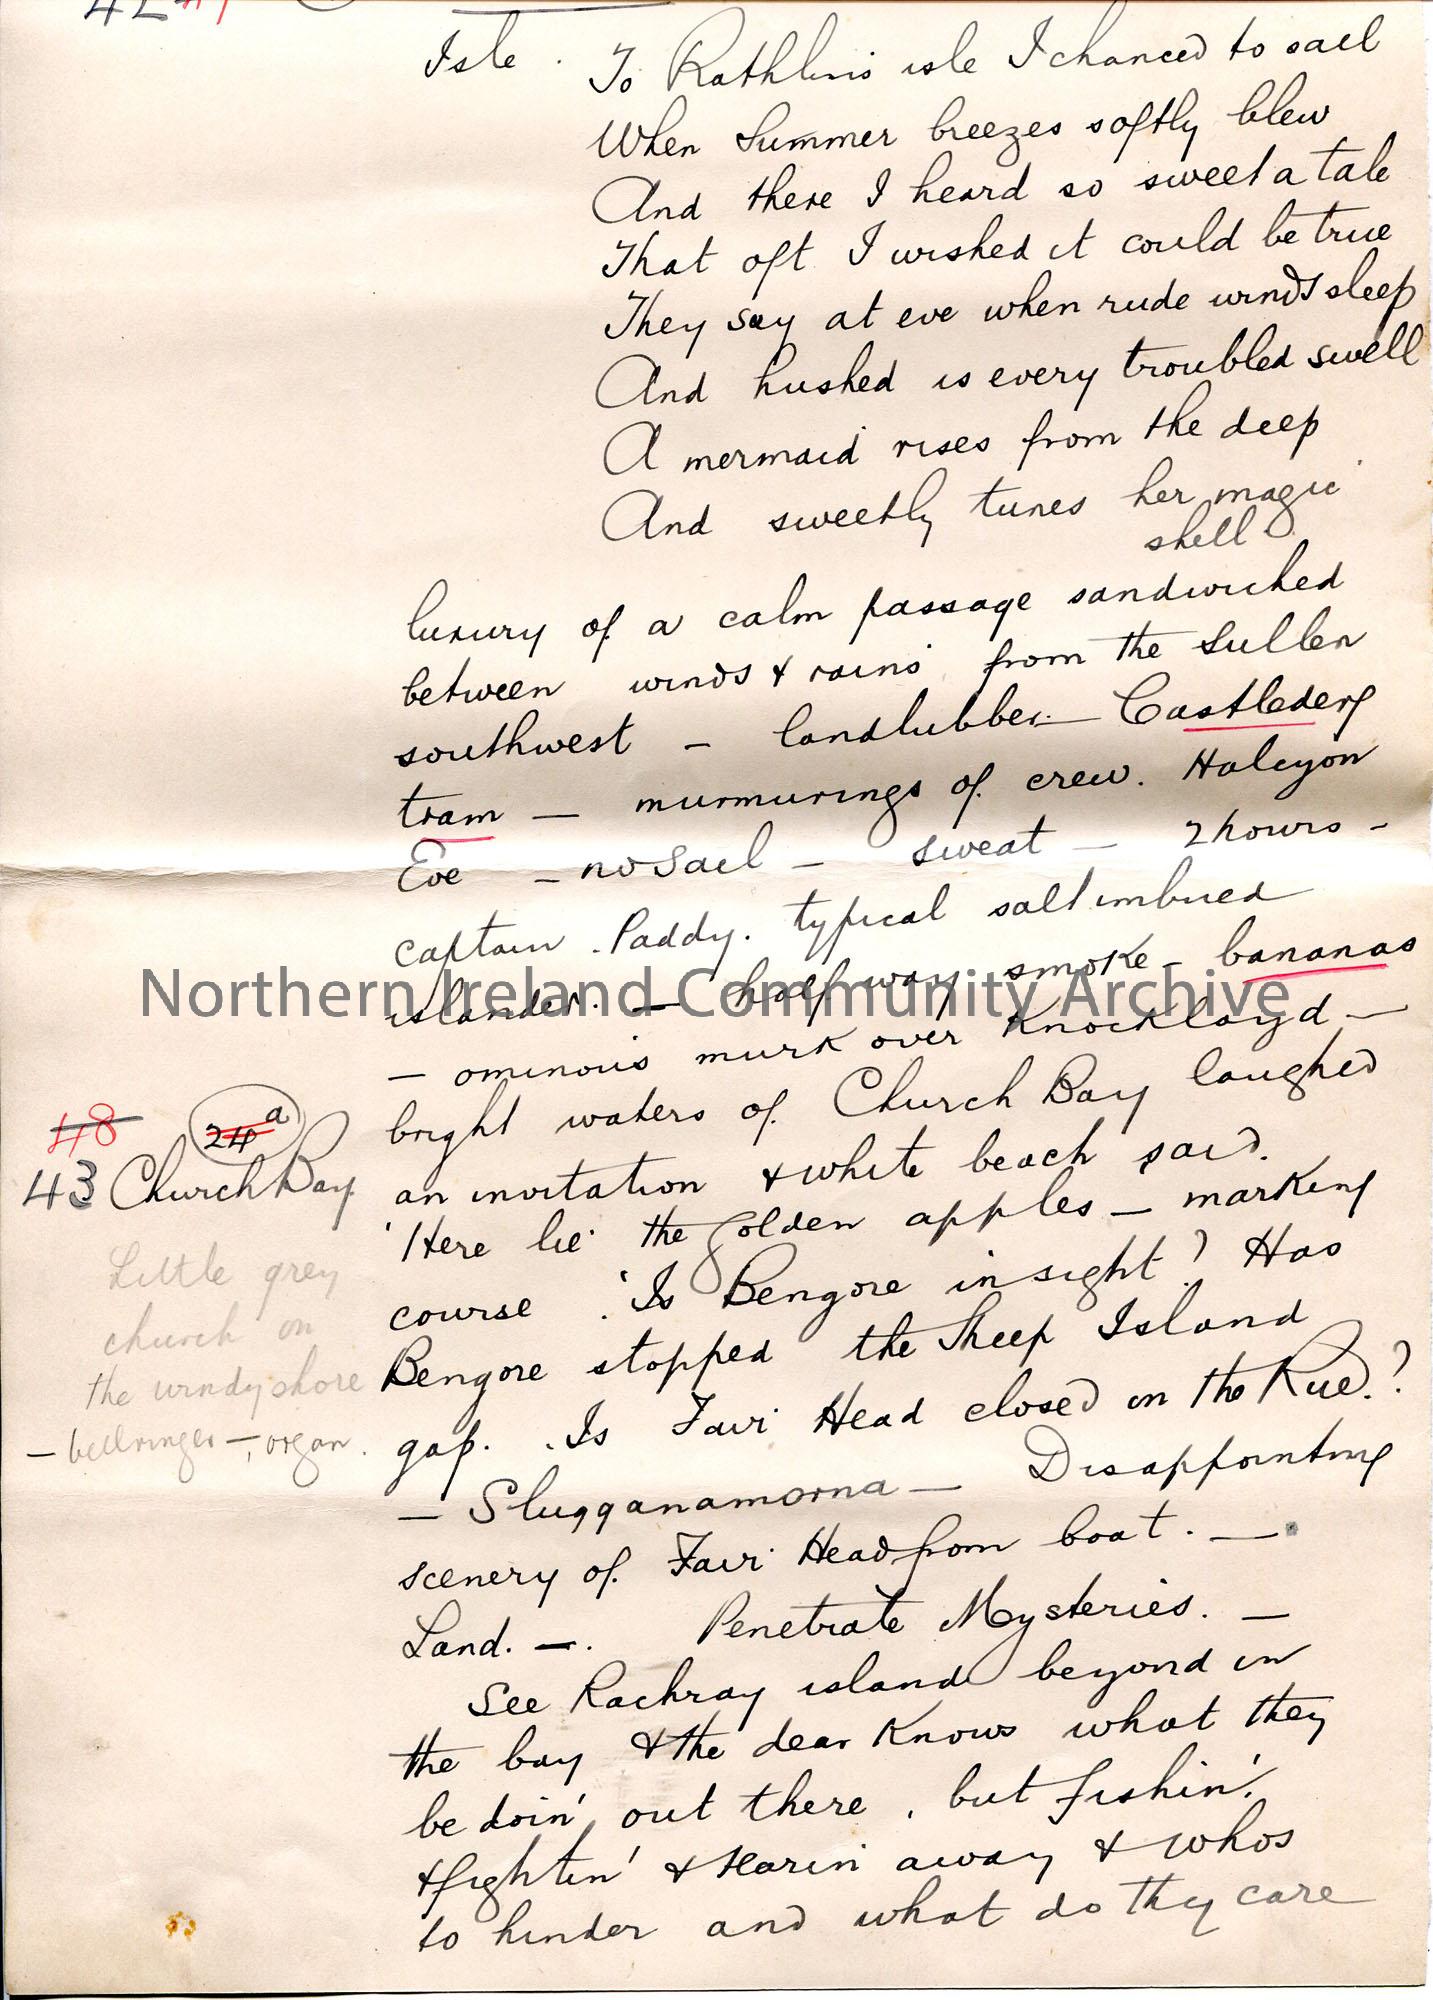 Isle . To Rathlins isle I chanced to sail
When Summer breezes softly blew
And there I heard so sweet a tale
That oft I wished it could be true
They say at eve when rude winds sleep
And hushed is every troubled swell
A mermaid rises from the deep
And sweetly tunes her magic
shell
luxury of a calm passage sandwiched
between winds & rains from the sullen
southwest – landlubber – Castlederg
tram – murmurings of crew. Halcyon
Eve – no sail – sweat – 2 hours –
captain . Paddy. typical salt imbued
islander. – half way smoke – bananas
– ominous murk over Knocklayd –
bright waters of Church Bay laughed
an invitation & white beach said.
'Here lie the golden apples – marking
course . 'Is Bengore in sight? Has
Bengore stopped the Sheep Island
gap. . Is Fair Head closed on the Rue.?
– Slugganamorna – Disappointing
scenery of Fair Head from boat. –
Land. –. Penetrate Mysteries. –
See Rachray island beyond in
the bay & the dear knows what they
be doin' out there , but fishin'.
& fightin' & tearin away & whos
to hinder and what do they care
48 24a
43 Church Bay
Little grey
church on
the windy shore
– bellringer –, organ.
Northern Ireland Community Archive